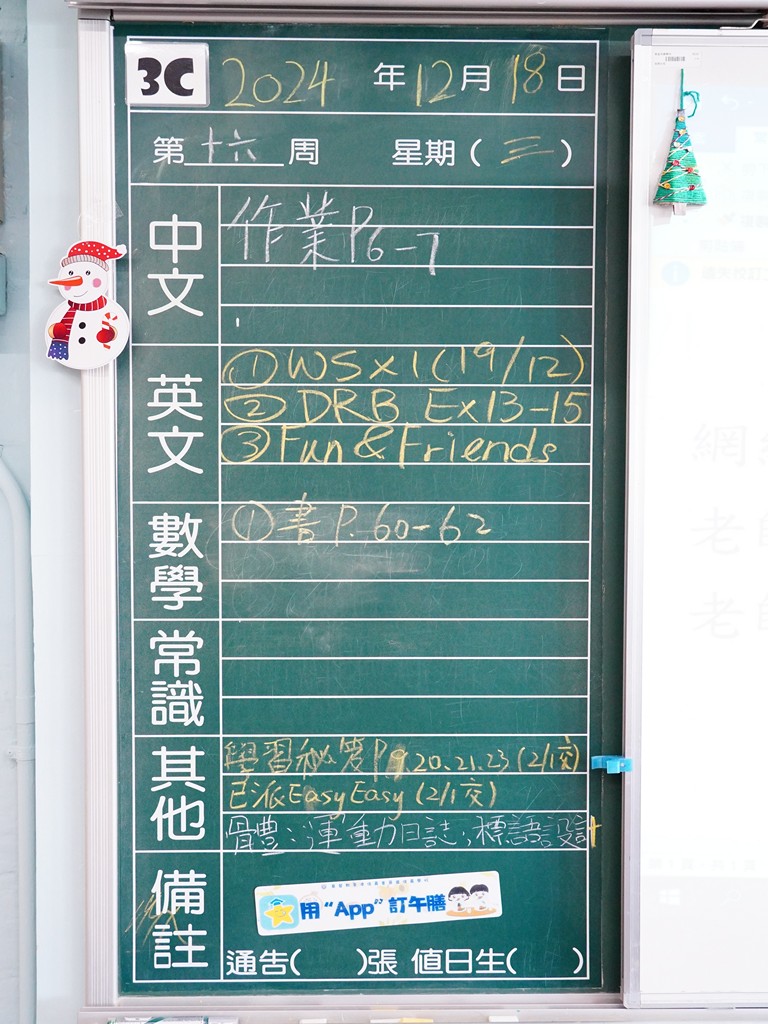 3C 2024 年 12 月 18 日
第 十六 周 星期 ( 三 )
中文
作業P6-7
英文
① WS x 1 (19/12)
② DRB Ex13-15
③ Fun & Friends
數學
① 書 P. 60-62
常識
其他
學習秘笈P.9 20.21.23 (2/1交)
已派Easy Easy (2/1交)
體:運動日誌;標語設計
備註
用 “App” 訂午膳
通告( )張 值日生( )
網
老師
老師